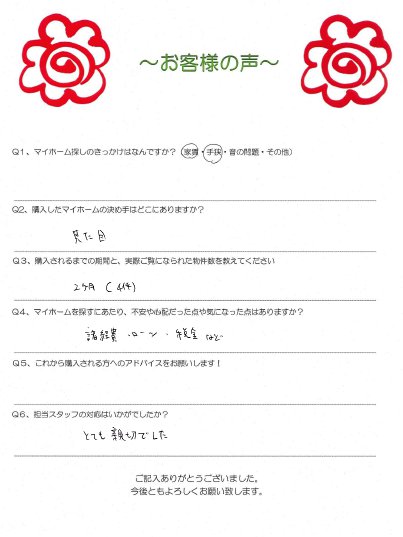 ～お客様の声～
Q1、マイホーム探しのきっかけはなんですか？（家賃・手狭・音の問題・その他）
Q2、購入したマイホームの決め手はどこにありますか？
見た目
Q3、購入されるまでの期間と、実際ご覧になられた物件数を教えてください
2ヶ月（4件）
Q4、マイホームを探すにあたり、不安や心配だった点や気になった点はありますか？
諸経費・ローン・税金 など
Q5、これから購入される方へのアドバイスをお願いします！
Q6、担当スタッフの対応はいかがでしたか？
とても親切でした
ご記入ありがとうございました。
今後ともよろしくお願い致します。